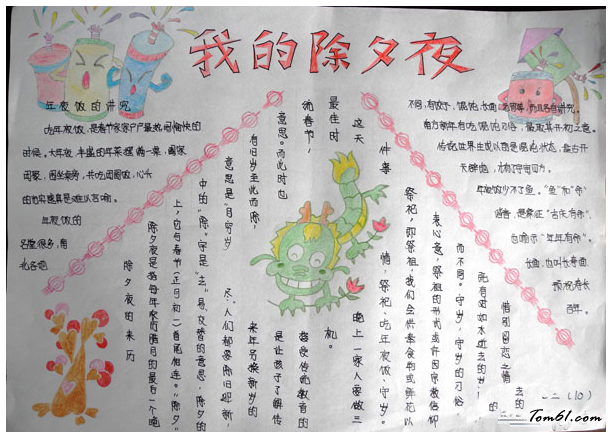 我的除夕夜
年夜饭的讲究
吃年夜饭,是春节家家户户最热闹愉快的
时候。大年夜,丰盛的年菜摆满一桌,阖家
团聚,围坐桌旁,共吃团圆饭,心头
的充实感真是难以言喻。
年夜饭的
名堂很多,南
北各地
不同,有饺子、馄饨、长面、
南方新年有吃馄饨习俗,是取其开初之意。
传说世界生成以前是混沌状态,盘古开
天辟地,才有了宇宙四方。
年夜饭少不了鱼。“鱼”和“余”
谐音,是象征“吉庆有余”,
也喻示“年年有余”。
长面,也叫长寿面,
预祝寿长
百年。
除夕夜的来历
除夕夜是指每年农历腊月的最后一个晚
上,它与春节(正月初一)首尾相连。“除夕”
中的“除”字是“去;易;交替”的意思,除夕的
意思是“月穷岁
尽”,人们都要除旧迎新,
有旧岁至此而除,
来年另换新岁的
意思。
是让孩子了解传
统春节
接受传统教育的
最佳时
机。
这天
晚上一家人要做三
件事
情,祭祀、吃年夜饭、守岁。
祭祀,即祭祖,我们会供素食物或鲜花以
表心意,祭祖的形式或许因宗教信仰
而不同。守岁,守岁的习俗
既有对如水逝去的岁月
惜别留恋之情
二(10)
Tom61.com